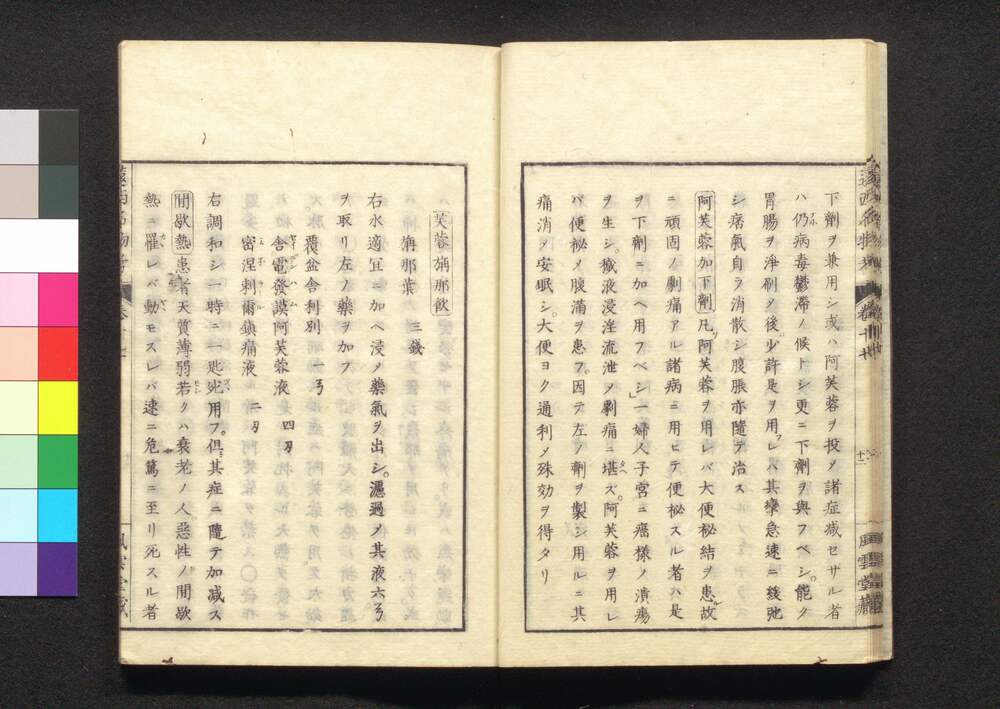 下劑ヲ兼用シ或ハ阿芙蓉ヲ投メ諸症減セサル者
ハ仍病毒鬱滞ノ候トシ更ニ下劑ヲ與フベシ。能ク
胃腸ヲ淨刷メ後少許是ヲ用レハ其攣急速ニ緩弛
シ痞氣自ラ消散シ腹脹亦隨テ治ス
阿芙蓉加下劑 凡阿芙蓉ヲ用レバ大便秘結ヲ患故
ニ頑固ノ劇痛アル諸病ニ用ヒテ便秘スル者ハ是
ヲ下劑ニ加ヘ用フベシ」一婦人子宮ニ癌様ノ潰瘍
ヲ生シ。穢液浸淫流泄メ劇痛ニ堪ズ。阿芙蓉ヲ用レ
バ便秘メ腹滿ヲ患フ。因テ左ノ劑ヲ製シ用ルニ其
痛消メ安眠シ。大便ヨク通利メ殊効ヲ得タリ
芙蓉旃那飲
旃那葉 三錢
右水適宜ニ加ヘ浸メ藥氣ヲ出シ。濾過メ其液六弓
ヲ取リ左ノ藥ヲ加フ
覆盆舎利別 一弓
舎電發謨阿芙蓉液 四刃
密涅刺爾鎮痛液 二刃
右調和シ一時ニ一匙宛用フ。倶其症ニ隨テ加減ス
間歇熱患者天質薄弱若クハ衰老ノ人惡性ノ間歇
熱ニ罹レバ動モスレバ速ニ危篤ニ至リ死スル者